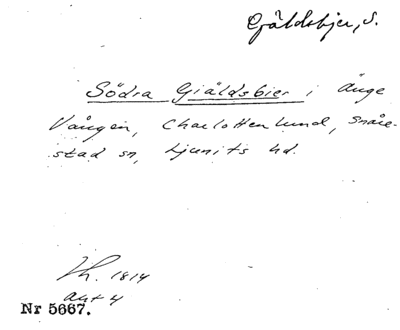 Gjäldsbjer, S.
Södra Giäldsbier i Änge
Vången, Charlottenlund, Snåre-
stad sn, Ljunits hd.
Lh. 1814
akt 4
Nr 5667.